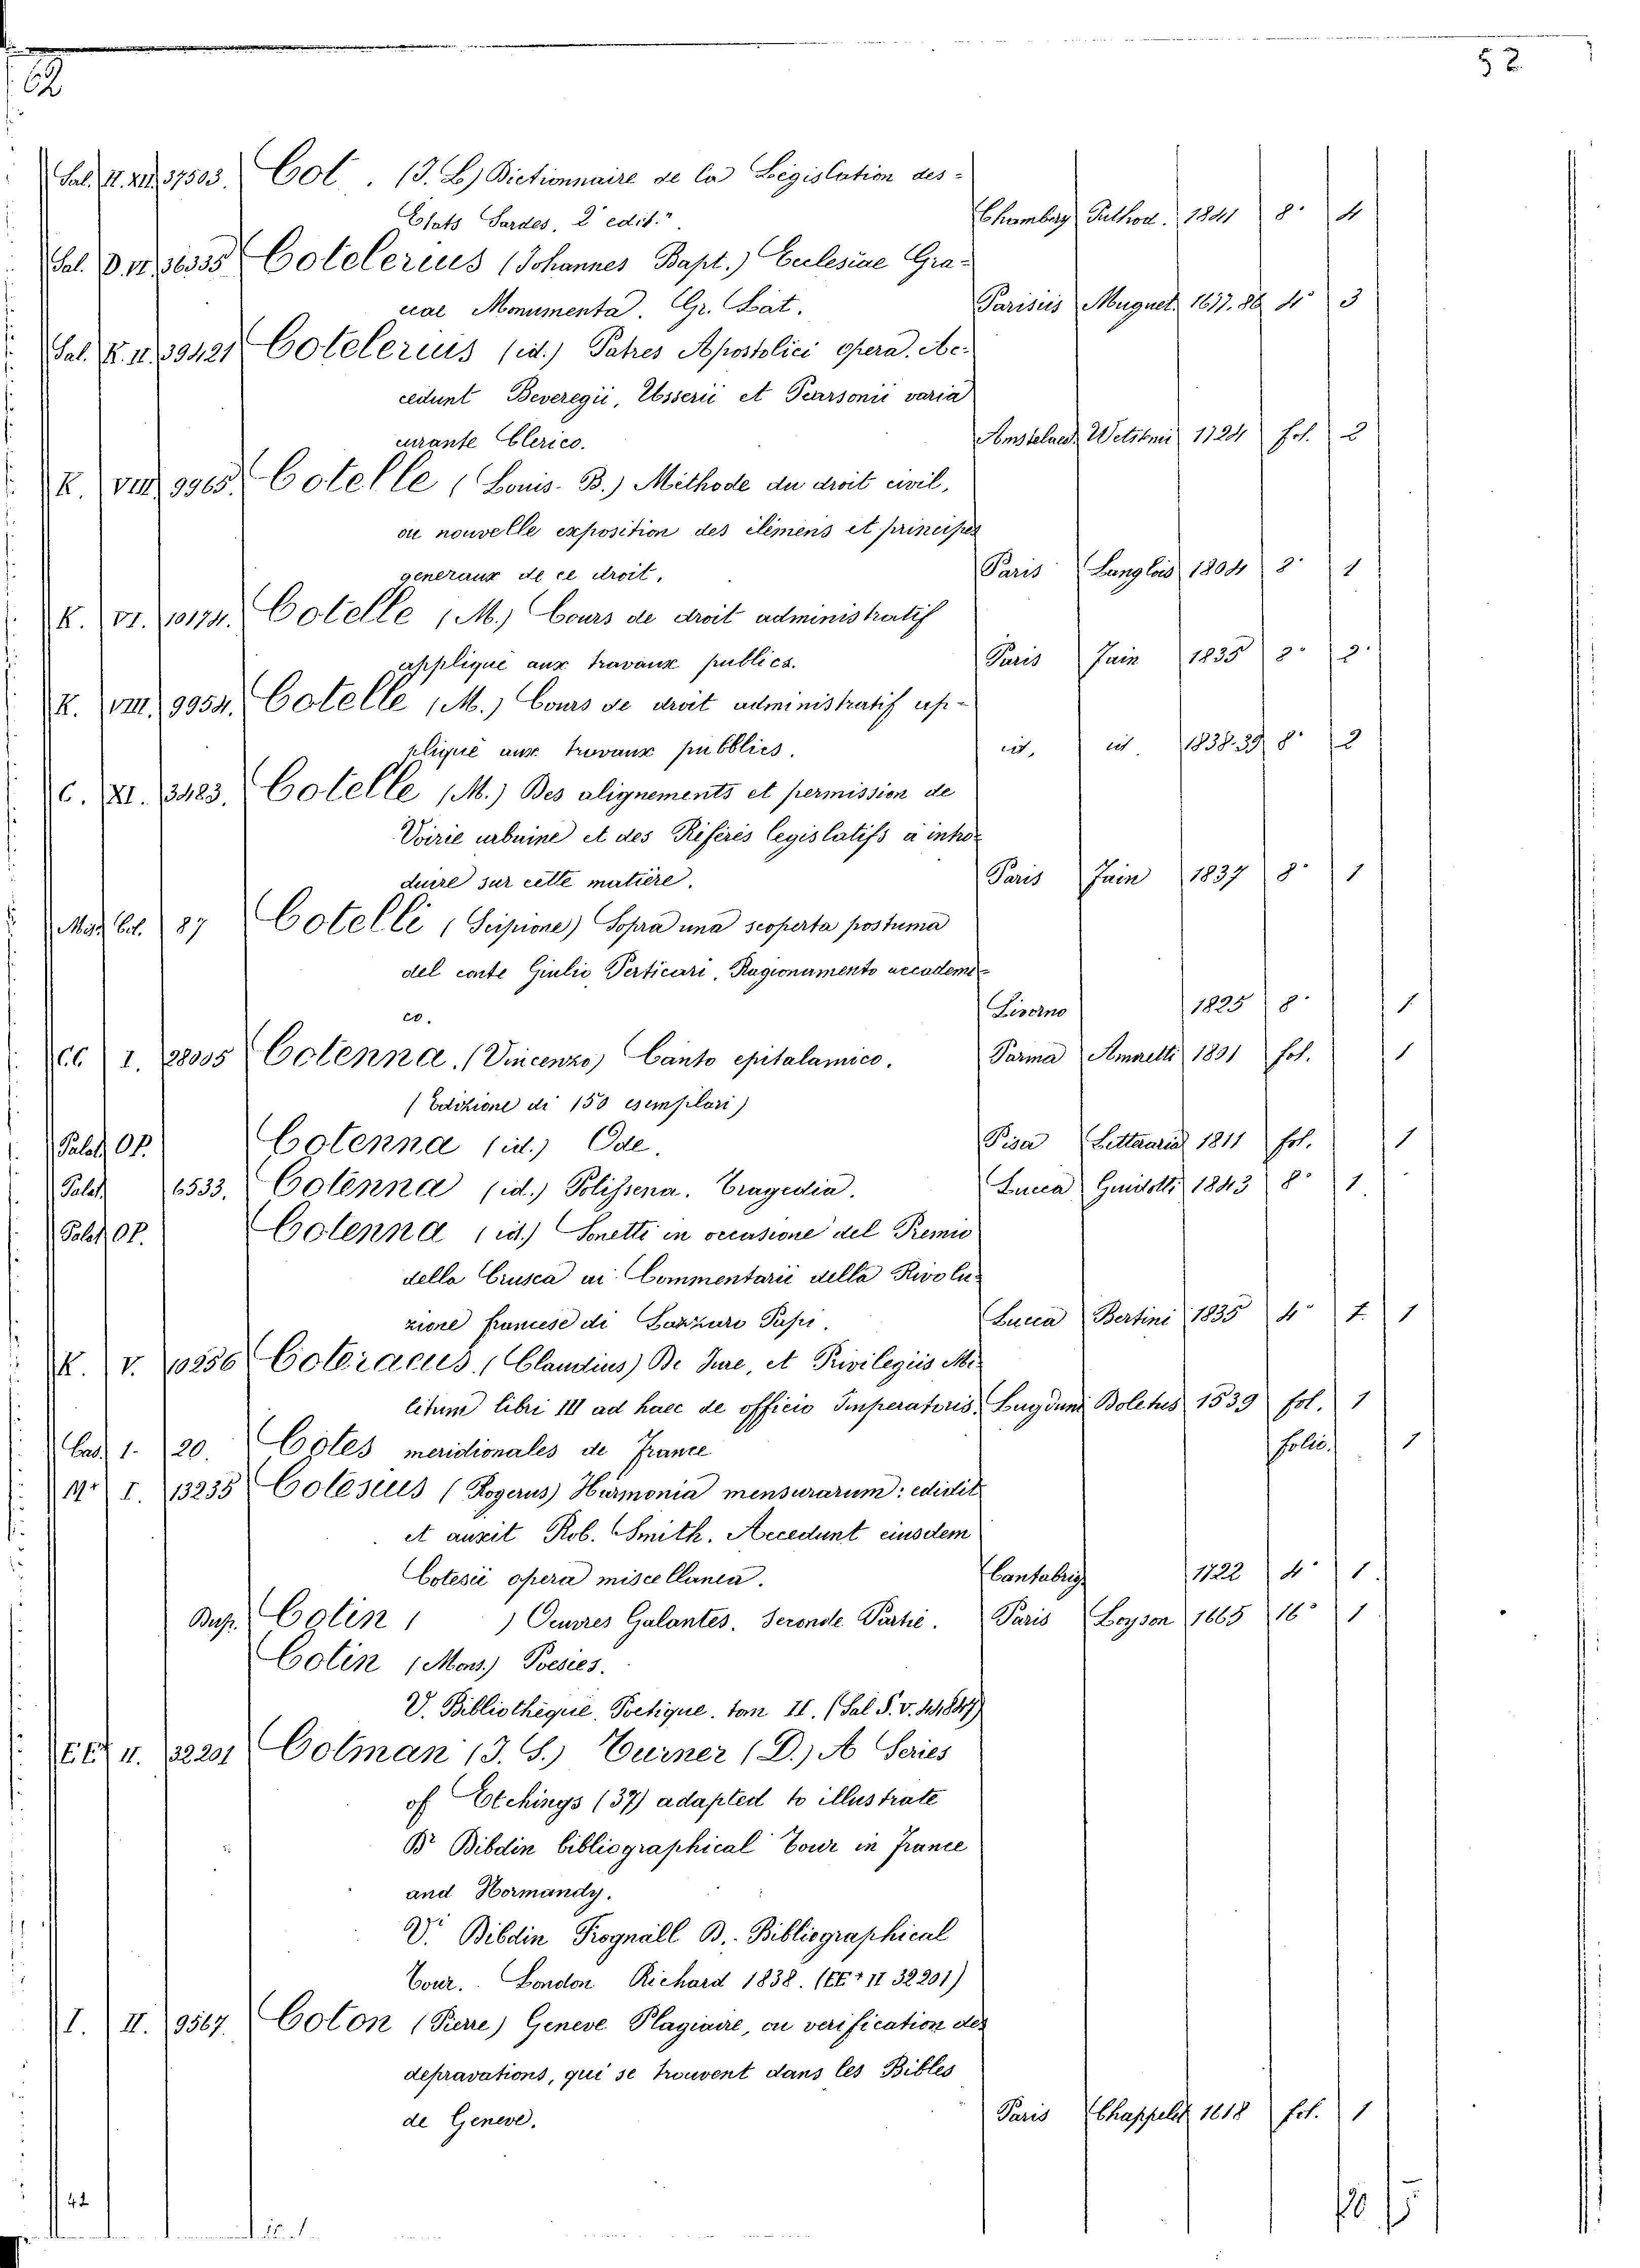 62
52
Sal. II. XII. 37503. Cot . (J. L.) Dictionnaire de la Législation des-
Etats Sardes, 2e edit.n Chambery Puthod. 1841 8° 4
Sal. D. VI. 36335 Cotelerius (Johannes Bapt.) Eclesiae Gra-
ecae Monumenta. Gr. Lat. Parisiis Muguet. 1677. 86 4° 3
Sal. K. II. 39421 Cotelerius (id.) Patres Apostolici opera. Ac-
cedunt Beveregii, Usserii et Pearsonii varia
curante Clerico. Amstelaed. Wetsteni 1724 fol. 2
K. VIII. 9965. Cotelle (Louis-B.) Méthode du droit civil,
ou nouvelle exposition des élémens et principes
generaux de ce droit, Paris Langlois 1804 8° 1
K. VI. 10174. Cotelle (M.) Cours de droit administratif
appliqué aux travaux publics. Paris Jain 1835 8° 2.
K. VIII. 9954. Cotelle (M.) Cours de droit administratif ap-
pliqué aux trovaux pubblics. id. id. 1838.39 8° 2
C. XI. 3483. Cotelle (M.) Des alignements et permission de
Voirie urbaine et des Réferés legislatifs à intro-
duire sur cette matière. Paris Jain 1837 8° 1
Mag. Col. 87 Cotelli (Scipione) Sopra una scoperta postuma
del conte Giulio Perticari, Ragionamento accademi-
co. Livorno 1825 8° 1
CC I. 28005 Cotenna. (Vincenzo) Canto epitalamico. Parma Amoretti 1801 fol. 1
(Edizione di 150 esemplari)
Palat. OP. Cotenna (id.) Ode. Pisa Letteraria 1811 fol. 1
Palat. 6533. Cotenna (id.) Polissena. Tragedia. Lucca Guidotti 1843 8° 1.
Palat. OP. Cotenna (id.) Sonetti in occasione del Premio
della Crusca ai Commentarii della Rivolu-
zione francese di Lazzaro Papi. Lucca Bertini 1835 4° 1
K. V. 10256 Coteraeus. (Claudius) De Jure, et Privilegiis Mi-
litum libri III ad haec de officio Imperatoris. Lugduni Doletus 1539 fol. 1
Cas. 1. 20. Cotes meridionales de France folio. 1
Mr I. 13235 Cotesius (Rogerus) Harmonia mensurarum: edidit
et auxit Rob. Smith. Accedunt eiusdem
Cotesii opera miscellanea. Cantabrig. 1722 4° 1.
Dup. Cotin ( ) Oeuvres Galantes. Seconde Partie. Paris Loyson 1665 16° 1
Cotin (Mons.) Poesies.
V. Bibliothèque Poetique. tom II. (Sal S. V. 44847)
EE+ II. 32201 Cotman (J. S.) Turner (D.) A Series
of Etchings (37) adapted to illustrate
Dr Dibdin bibliographical Tour in France
and Normandy.
V. Dibdin Frognall B. Bibliographical
Tour. London Richard 1838. (EE+ II 32201)
I. II. 9567. Coton (Pierre) Geneve Plagiaire, ou verification des
depravations, qui se trouvent dans les Bibles
de Geneve. Paris Chappelet 1618 fol. 1
42